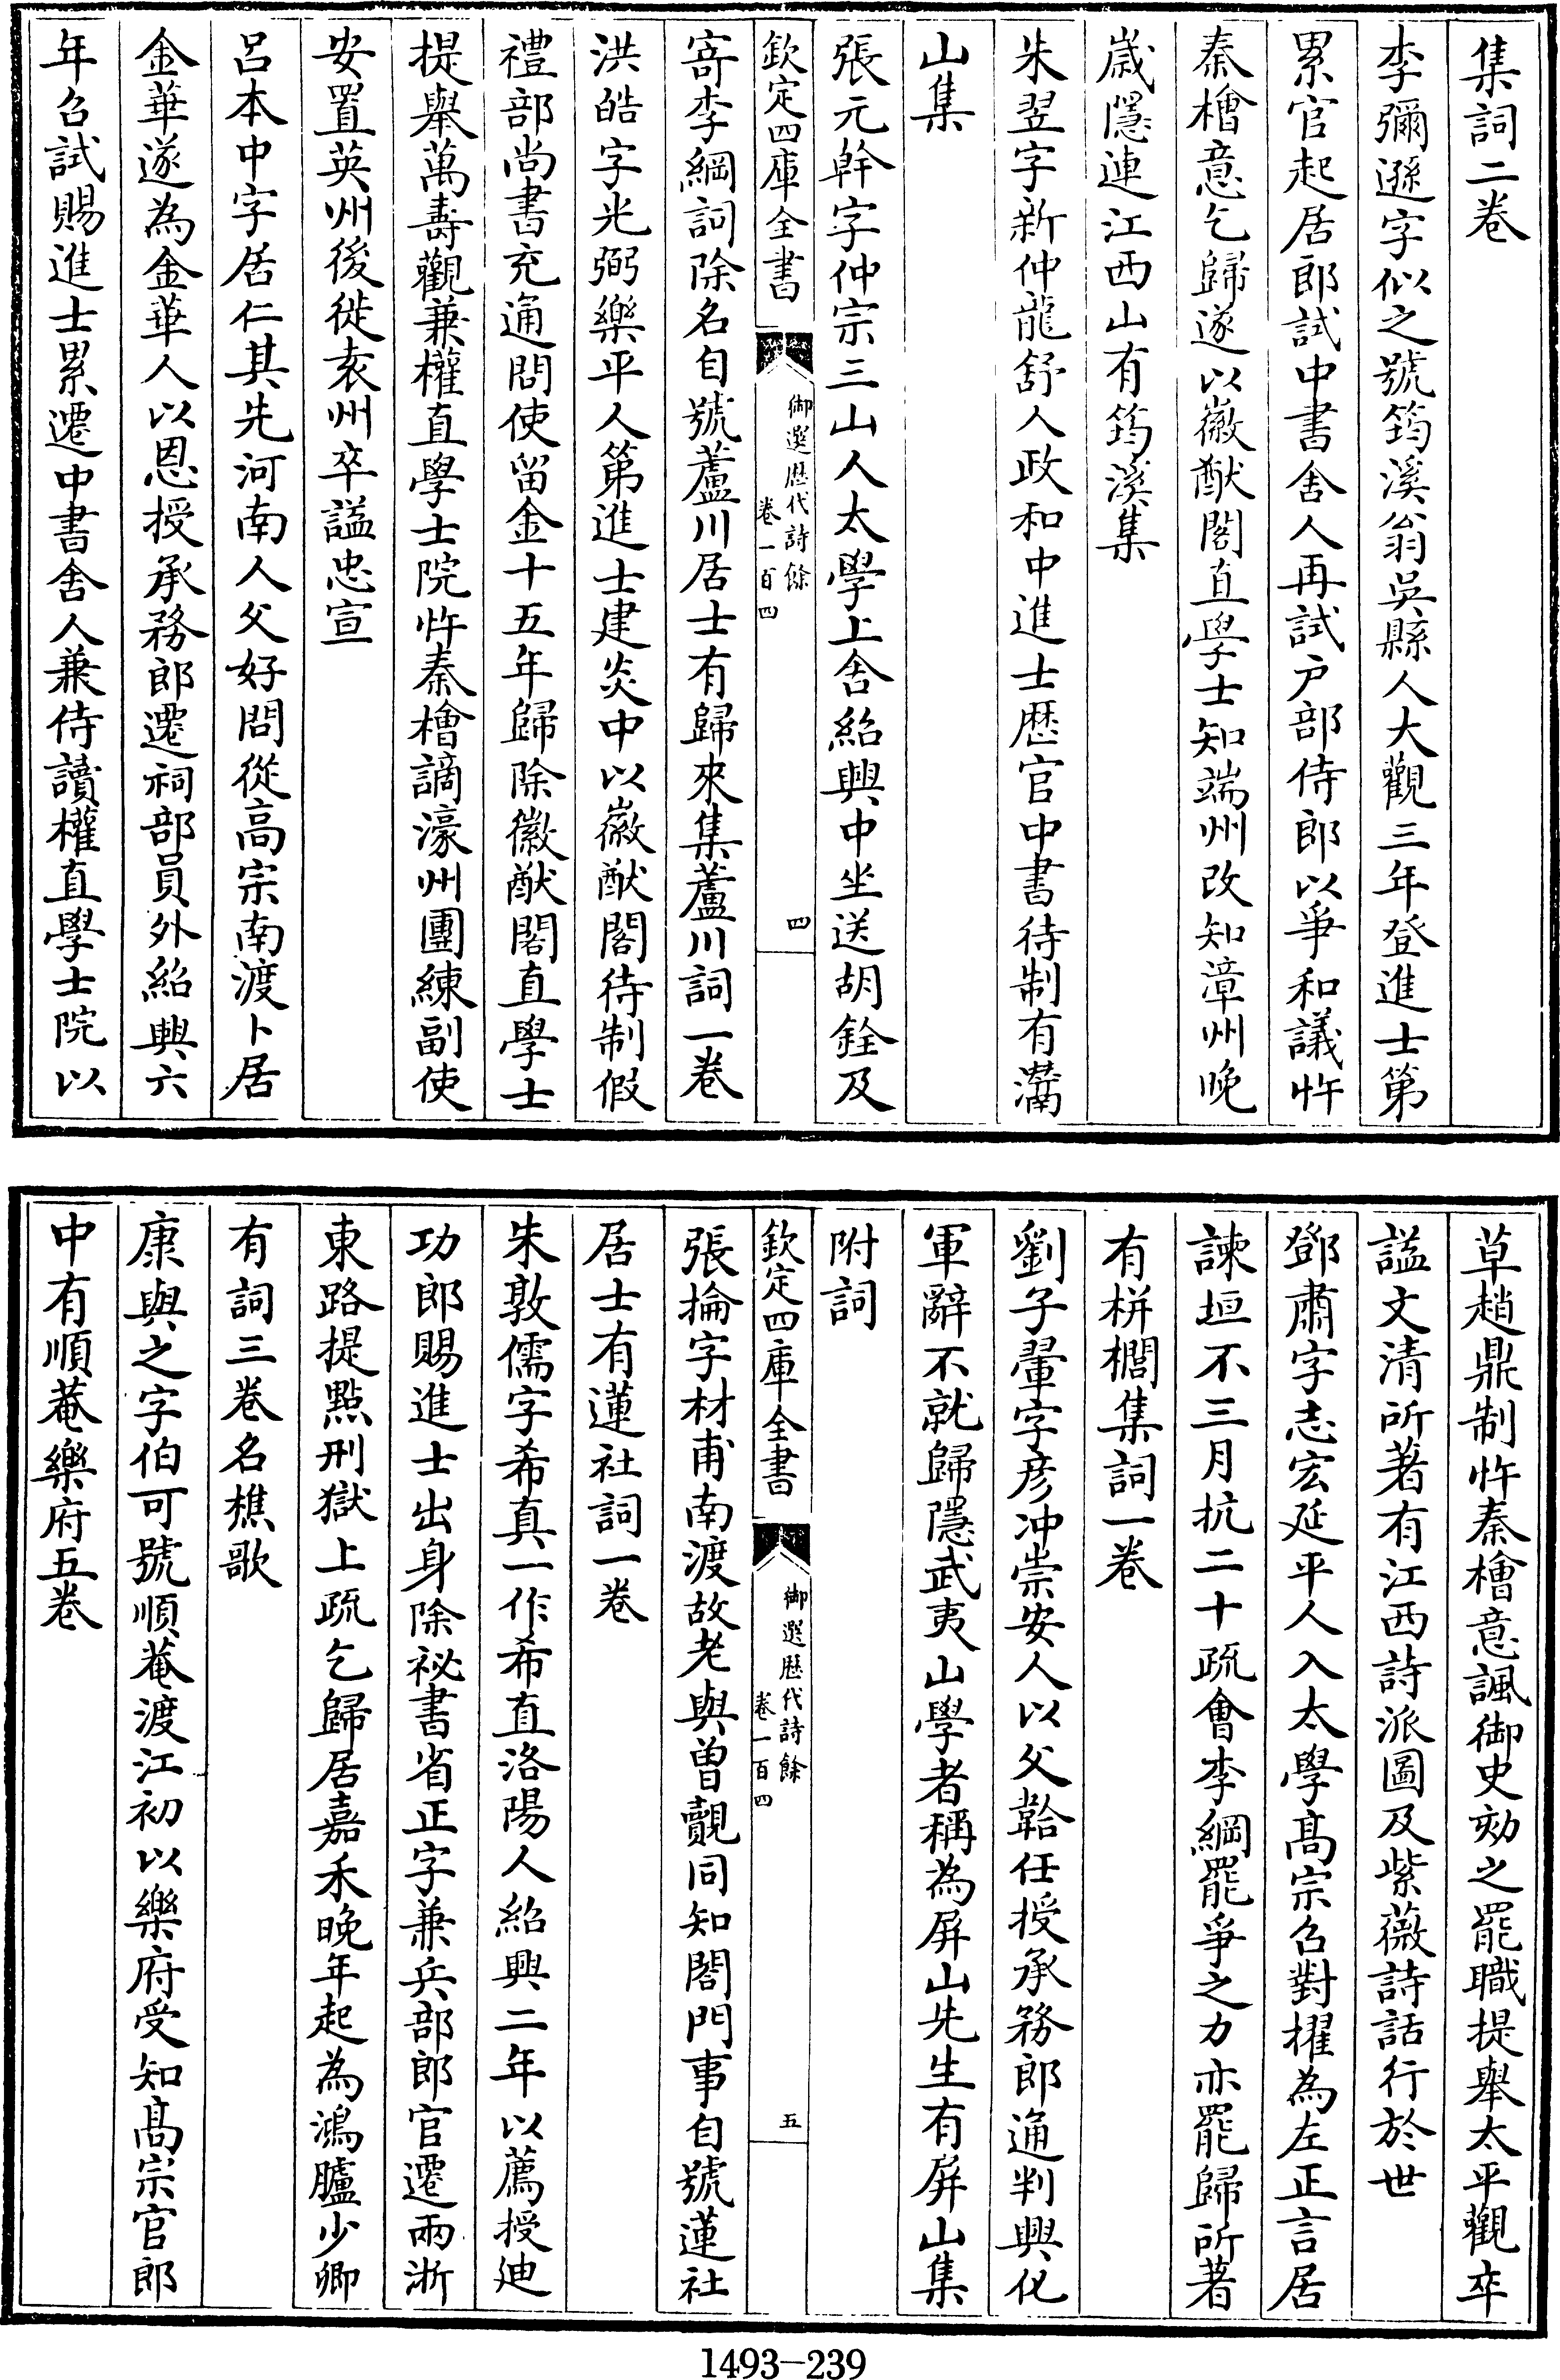 集詞二卷
李彌遜字似之號筠溪翁吳縣人大觀三年登進士第
累官起居郎試中書舍人再試户部侍郎以爭和議忤
秦檜意乞歸遂以徽猷閣直學士知端州改知漳州晚
歲隱連江西山有筠溪集
朱翌字新仲龍舒人政和中進士歴官中書待制有灊
山集
張元幹字仲宗三山人太學上舍紹興中坐送胡銓及
欽定四庫全書
御選歷代詩餘
卷一百四
四
寄李綱詞除名自號蘆川居士有歸來集蘆川詞一卷
洪皓字光弼樂平人第進士建炎中以徽猷閣待制假
禮部尚書充通問使留金十五年歸除徽猷閣直學士
提舉萬壽觀兼權直學士院忤秦檜謫濠州團練副使
安置英州後徙袁州卒謚忠宣
呂本中字居仁其先河南人父好問從高宗南渡卜居
金華遂為金華人以恩授承務郎遷祠部員外紹興六
年召試賜進士累遷中書舍人兼侍讀權直學士院以
草趙鼎制忤秦檜意諷御史劾之罷職提舉太平觀卒
謚文清所著有江西詩派圖及紫薇詩話行於世
鄧肅字志宏延平人入太學髙宗召對擢為左正言居
諫垣不三月抗二十疏會李綱罷爭之力亦罷歸所著
有栟櫚集詞一卷
劉子翬字彦冲崇安人以父韐任授承務郎通判興化
軍辭不就歸隱武夷山學者稱為屏山先生有屏山集
附詞
欽定四庫全書
御選歷代詩餘
卷一百四
五
張掄字材甫南渡故老與曽覿同知閤門事自號蓮社
居士有蓮社詞一卷
朱敦儒字希真一作希直洛陽人紹興二年以薦授迪
功郎賜進士出身除祕書省正字兼兵部郎官遷兩浙
東路提點刑獄上疏乞歸居嘉禾晚年起為鴻臚少卿
有詞三卷名樵歌
康與之字伯可號順菴渡江初以樂府受知髙宗官郎
中有順菴樂府五卷
1493—239